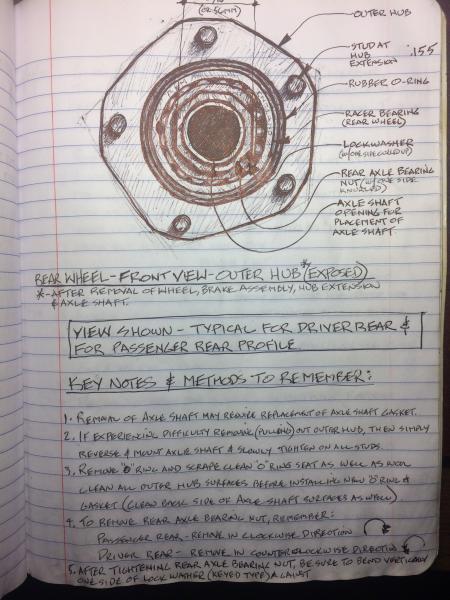 OUTER HUB
STUD AT
HUB
EXTENSION
.155
RUBBER O-RING
RACER BEARING
(REAR WHEEL)
LOCKWASHER
REAR AXLE BEARING
NUT (W/ONE SIDE
KNURLED)
AXLE SHAFT
OPENING FOR
PLACEMENT OF
AXLE SHAFT.
REAR WHEEL-FRONT VIEW-OUTER HUB* (EXPOSED)
*-AFTER REMOVAL OF WHEEL, BRAKE ASSEMBLY, HUB EXTENSION
& AXLE SHAFT.
VIEW SHOWN - TYPICAL FOR DRIVER REAR &
FOR PASSENGER REAR PROFILE.
KEY NOTES & METHODS TO REMEMBER:
1. REMOVAL OF AXLE SHAFT MAY REQUIRE REPLACEMENT OF AXLE SHAFT GASKET.
2. IF EXPERIENCING DIFFICULTY REMOVING (PULLING) OUT OUTER HUB, THEN SIMPLY
REVERSE & MOUNT AXLE SHAFT & SLOWLY TIGHTEN ON ALL STUDS.
3. REMOVE "O" RING AND SCRAPE CLEAN "O" RING SEAT AS WELL AS WOOL
CLEAN ALL OUTER HUB SURFACES BEFORE INSTALLING NEW "O" RING &
GASKET (CLEAN BACK SIDE OF AXLE SHAFT SURFACES AS WELL)
4. TO REMOVE REAR AXLE BEARING NUT, REMEMBER:
PASSENGER REAR - REMOVE IN CLOCKWISE DIRECTION
DRIVER REAR - REMOVE IN COUNTERCLOCKWISE DIRECTION
5. AFTER TIGHTENING REAR AXLE BEARING NUT, BE SURE TO BEND VERTICALLY
ONE SIDE OF LOCK WASHER (KEYED TYPE) AGAINST